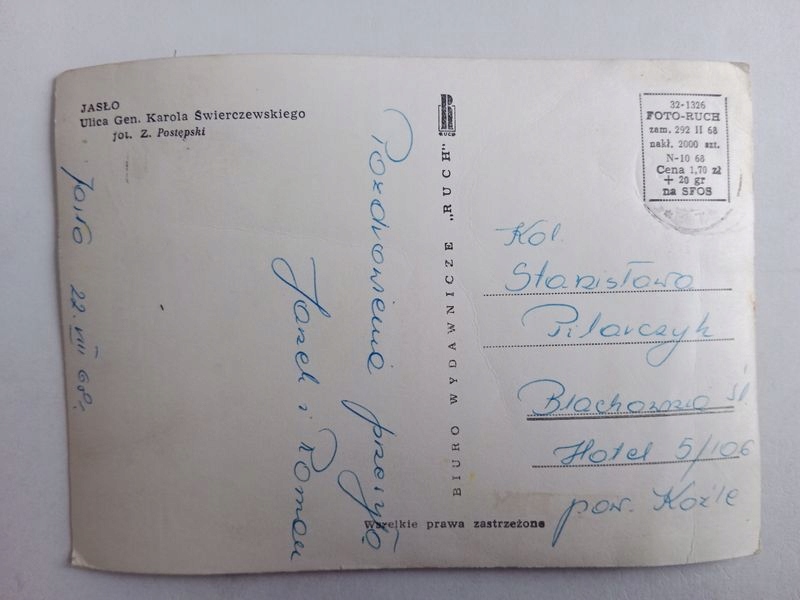 JASŁO
Ulica Gen. Karola Świerczewskiego
fot. Z. Postępski
Jasło 22. VIII 68r.
Pozdrowienia przesyła
Janek i Roman
RUCH
BIURO WYDAWNICZE „RUCH"
32-1326
FOTO-RUCH
zam. 292 II 68
nakł. 2000 szt.
N-10 68
Cena 1,70 zł
+ 20 gr
na SFOS
Kol.
Stanisława
Pilarczyk
Blachownia Śl
Hotel 5/106
pow. Koźle
Wszelkie prawa zastrzeżone